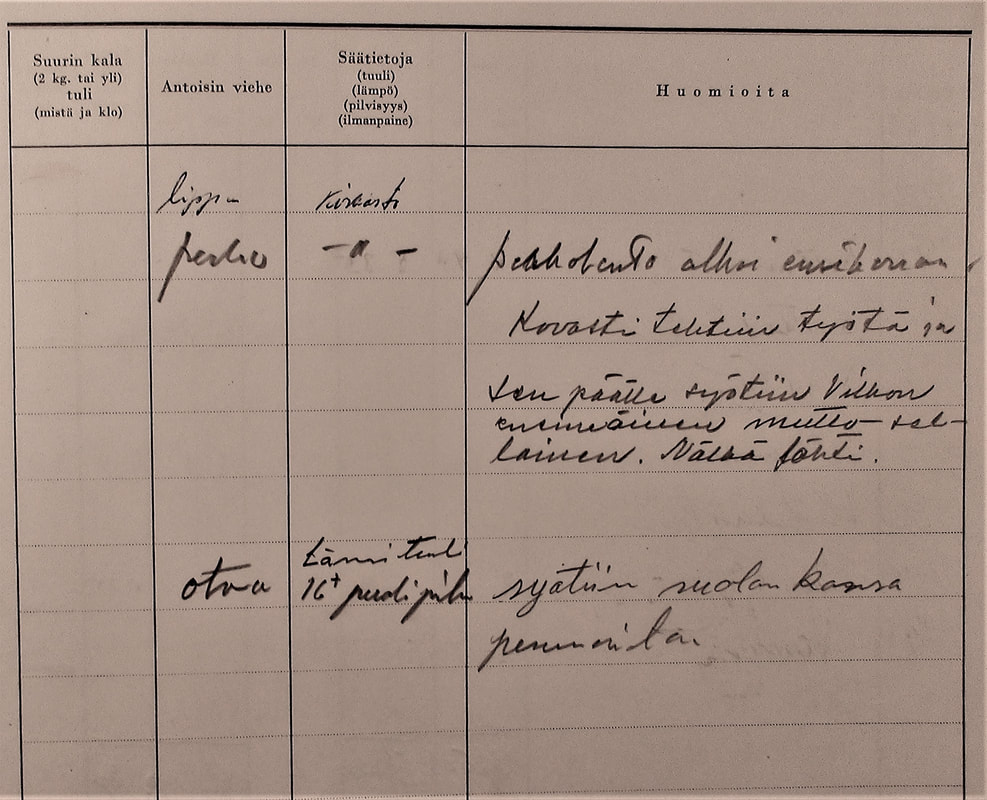 Suurin kala
(2 kg. tai yli)
tuli
(mistä ja klo)
Antoisin viehe
Säätietoja
(tuuli)
(lämpö)
(pilvisyys)
(ilmanpaine)
Huomioita
lippa Kirkasta
perho — " — alkoi ensikerran
Kovasti tehtiin työtä ja
sen päälle syötiin Vilkon
ensimäinen mutto sel-
lainen. Nälkä lähti.
Länsi tuuli
otva 16+ puoli pilv syötiin suolan kanssa